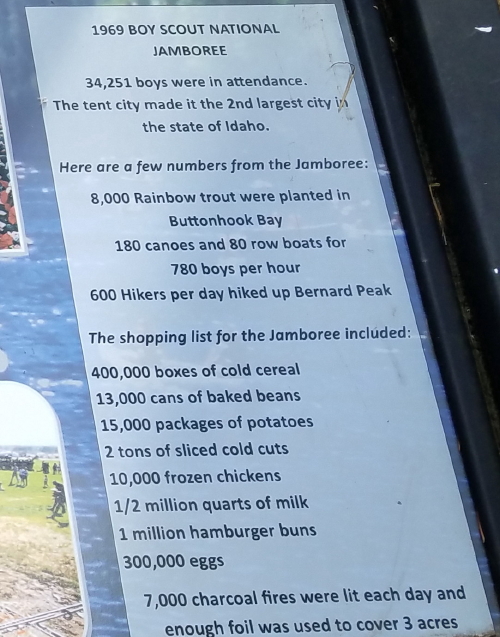 1969 BOY SCOUT NATIONAL
JAMBOREE
34,251 boys were in attendance.
The tent city made it the 2nd largest city in
the state of Idaho.
Here are a few numbers from the Jamboree:
8,000 Rainbow trout were planted in
Buttonhook Bay
180 canoes and 80 row boats for
780 boys per hour
600 Hikers per day hiked up Bernard Peak
The shopping list for the Jamboree included:
400,000 boxes of cold cereal
13,000 cans of baked beans
15,000 packages of potatoes
2 tons of sliced cold cuts
10,000 frozen chickens
1/2 million quarts of milk
1 million hamburger buns
300,000 eggs
7,000 charcoal fires were lit each day and
enough foil was used to cover 3 acres